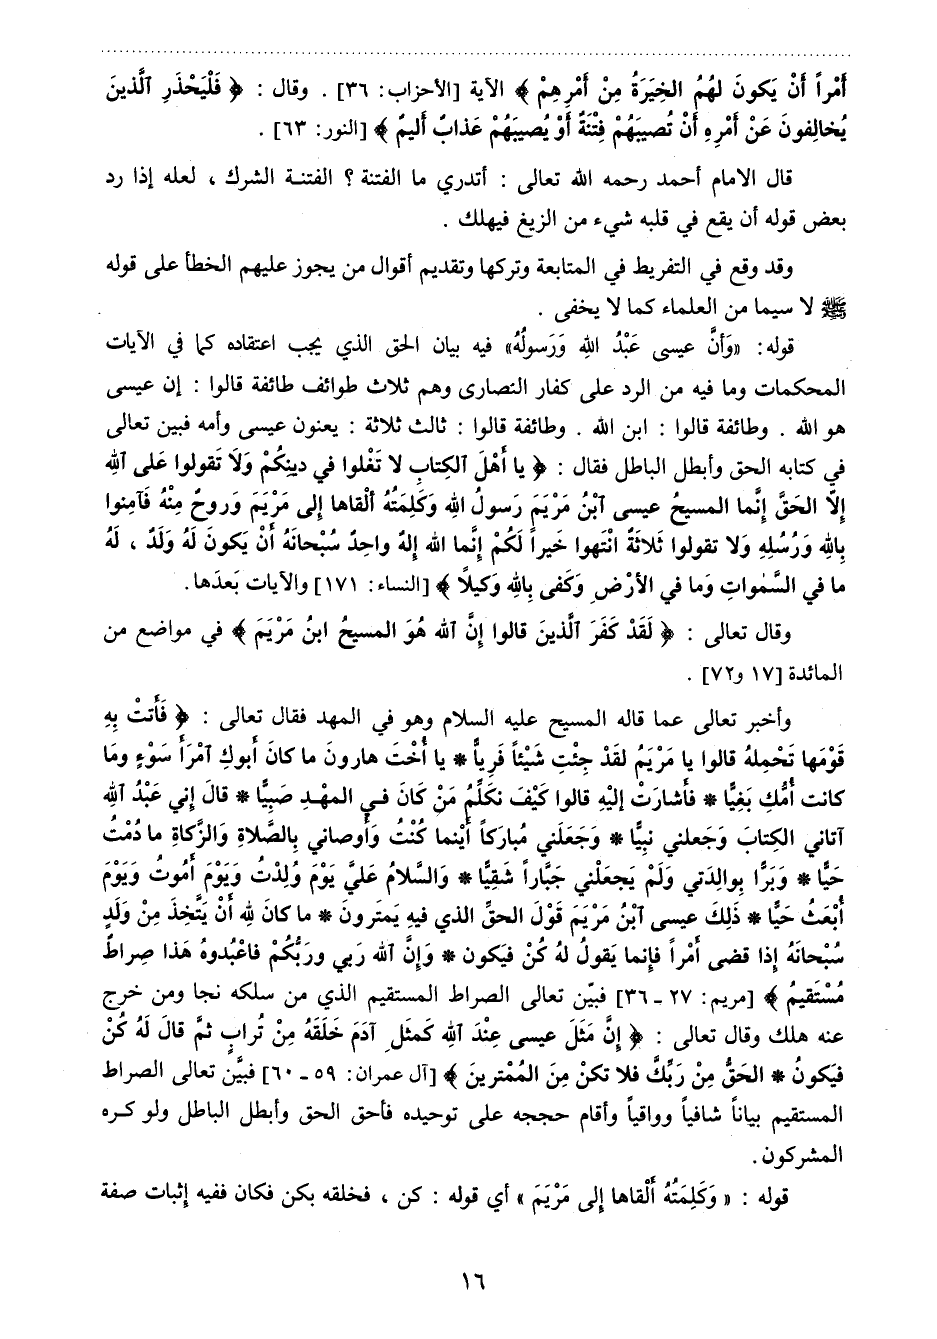 أَمْراً أَنْ يَكونَ لهُمُ الخِيَرَةُ مِنْ أَمْرِهِمْ ﴾ الآية [الأحزاب: ٣٦] . وقال : ﴿ فَلْيَحْذَرِ ٱلَّذينَ
يُخالِفونَ عَنْ أَمْرِهِ أَنْ تُصيبَهُمْ فِتْنَةٌ أَوْ يُصيبَهُمْ عَذابٌ أَليمٌ ﴾ [النور: ٦٣] .
قال الامام أحمد رحمه الله تعالى : أتدري ما الفتنة ؟ الفتنـة الشرك ، لعله إذا رد
بعض قوله أن يقع في قلبه شيء من الزيغ فيهلك .
وقد وقع في التفريط في المتابعة وتركها وتقديم أقوال من يجوز عليهم الخطأ على قوله
ﷺ لا سيما من العلماء كما لا يخفى .
قوله: «وَأَنَّ عيسى عَبْدُ الله وَرَسولُهُ» فيه بيان الحق الذي يجب اعتقاده كما في الآيات
المحكمات وما فيه من الرد على كفار النصارى وهم ثلاث طوائف طائفة قالوا : إن عيسى
هو الله . وطائفة قالوا : ابن الله . وطائفة قالوا : ثالث ثلاثة : يعنون عيسى وأمه فبين تعالى
في كتابه الحق وأبطل الباطل فقال : ﴿ يا أَهْلَ ٱلكِتابِ لا تَغْلوا في دينِكُمْ وَلَا تَقولوا عَلى ٱللهِ
إِلاّ الحَقَّ إِنَّما المسيحُ عيسى ٱبْنُ مَرْيَمَ رَسولُ اللهِ وَكَلِمَتُهُ أَلْقاها إِلى مَرْيَمَ وَروحٌ مِنْهُ فَآمِنوا
بِاللهِ وَرُسُلِهِ وَلا تقولوا ثَلاثَةٌ انْتَهوا خَيراً لَكُمْ إِنَّما الله إِلهٌ واحِدٌ سُبْحانَهُ أَنْ يَكونَ لَهُ وَلَدٌ ، لَهُ
ما في السَّمٰواتِ وَما في الأرْضِ وَكَفى بِاللهِ وَكيلًا ﴾ [النساء: ١٧١] والآيات بَعدَها.
وقال تعالى : ﴿ لَقَدْ كَفَرَ ٱلَّذينَ قالوا إِنَّ الله هُوَ المسيحُ ابنُ مَرْيَمَ ﴾ في مواضع من
المائدة [١٧ و٧٢] .
وأخبر تعالى عما قاله المسيح عليه السلام وهو في المهد فقال تعالى : ﴿ فَأَتتْ بِهِ
قَوْمَها تَحْمِلهُ قالوا يا مَرْيَمُ لقَدْ جِئْتِ شَيْئاً فَرِياًّ * يا أُخْتَ هارونَ ما كانَ أَبوكِ ٱمْرَأَ سَوْءٍ وما
كانت أُمُّكِ بَغِيًّا * فأَشارَتْ إِليْهِ قالوا كَيْفَ نكَلِّمُ مَنْ كَانَ فـي المهْـدِ صَبِيًّا * قالَ إِني عَبْدُ ٱلله
آتاني الكِتابَ وَجَعلني نبِيًّا * وَجَعَلَني مُبارَكاً أَيْنما كُنْتُ وَأَوصاني بِالصَّلاةِ وَالزَّكاةِ ما دُمْتُ
حَيًّا * وَبَرًّا بوالِدَتي وَلَمْ يَجعَلْني جَبَّاراً شَقِيًّا * وَالسَّلامُ عَليَّ يَوْمَ وُلِدْتُ وَيَوْمَ أَموتُ وَيَوْمَ
أُبْعَثُ حَيًّا * ذَلِكَ عيسى ٱبْنُ مَرْيَمَ قَوْلَ الحقِّ الذي فيهِ يَمترَونَ * ما كانَ للهِ أَنْ يَتَّخِذَ مِنْ وَلَدٍ
سُبْحانَهُ إِذا قضى أَمْراً فَإِنما يَقولُ لهُ كُنْ فيَكون * وَإِنَّ ٱلله رَبي ورَبُّكُمْ فاعْبُدوهُ هَذا صِراطٌ
مُسْتَقيمٌ ﴾ [مريم: ٢٧ ـ ٣٦] فبيّن تعالى الصراط المستقيم الذي من سلكه نجا ومن خرج
عنه هلك وقال تعالى : ﴿ إِنَّ مَثَلَ عيسى عِنْدَ ٱللهِ كَمثَلِ آدَمَ خَلَقَهُ مِنْ تُرابٍ ثمَّ قالَ لَهُ كُنْ
فيَكونُ * الحَقُّ مِنْ رَبِّكَ فَلا تكنْ مِنَ المُمْترينَ ﴾ [آل عمران: ٥٩ ـ ٦٠] فبيَّن تعالى الصراط
المستقيم بياناً شافياً وواقياً وأقام حججه على توحيده فأحق الحق وأبطل الباطل ولو كـره
المشركون.
قوله : « وَكَلِمَتُهُ أَلْقاها إِلى مَرْيَمَ » أي قوله : كن ، فخلقه بكن فكان ففيه إثبات صفة
١٦